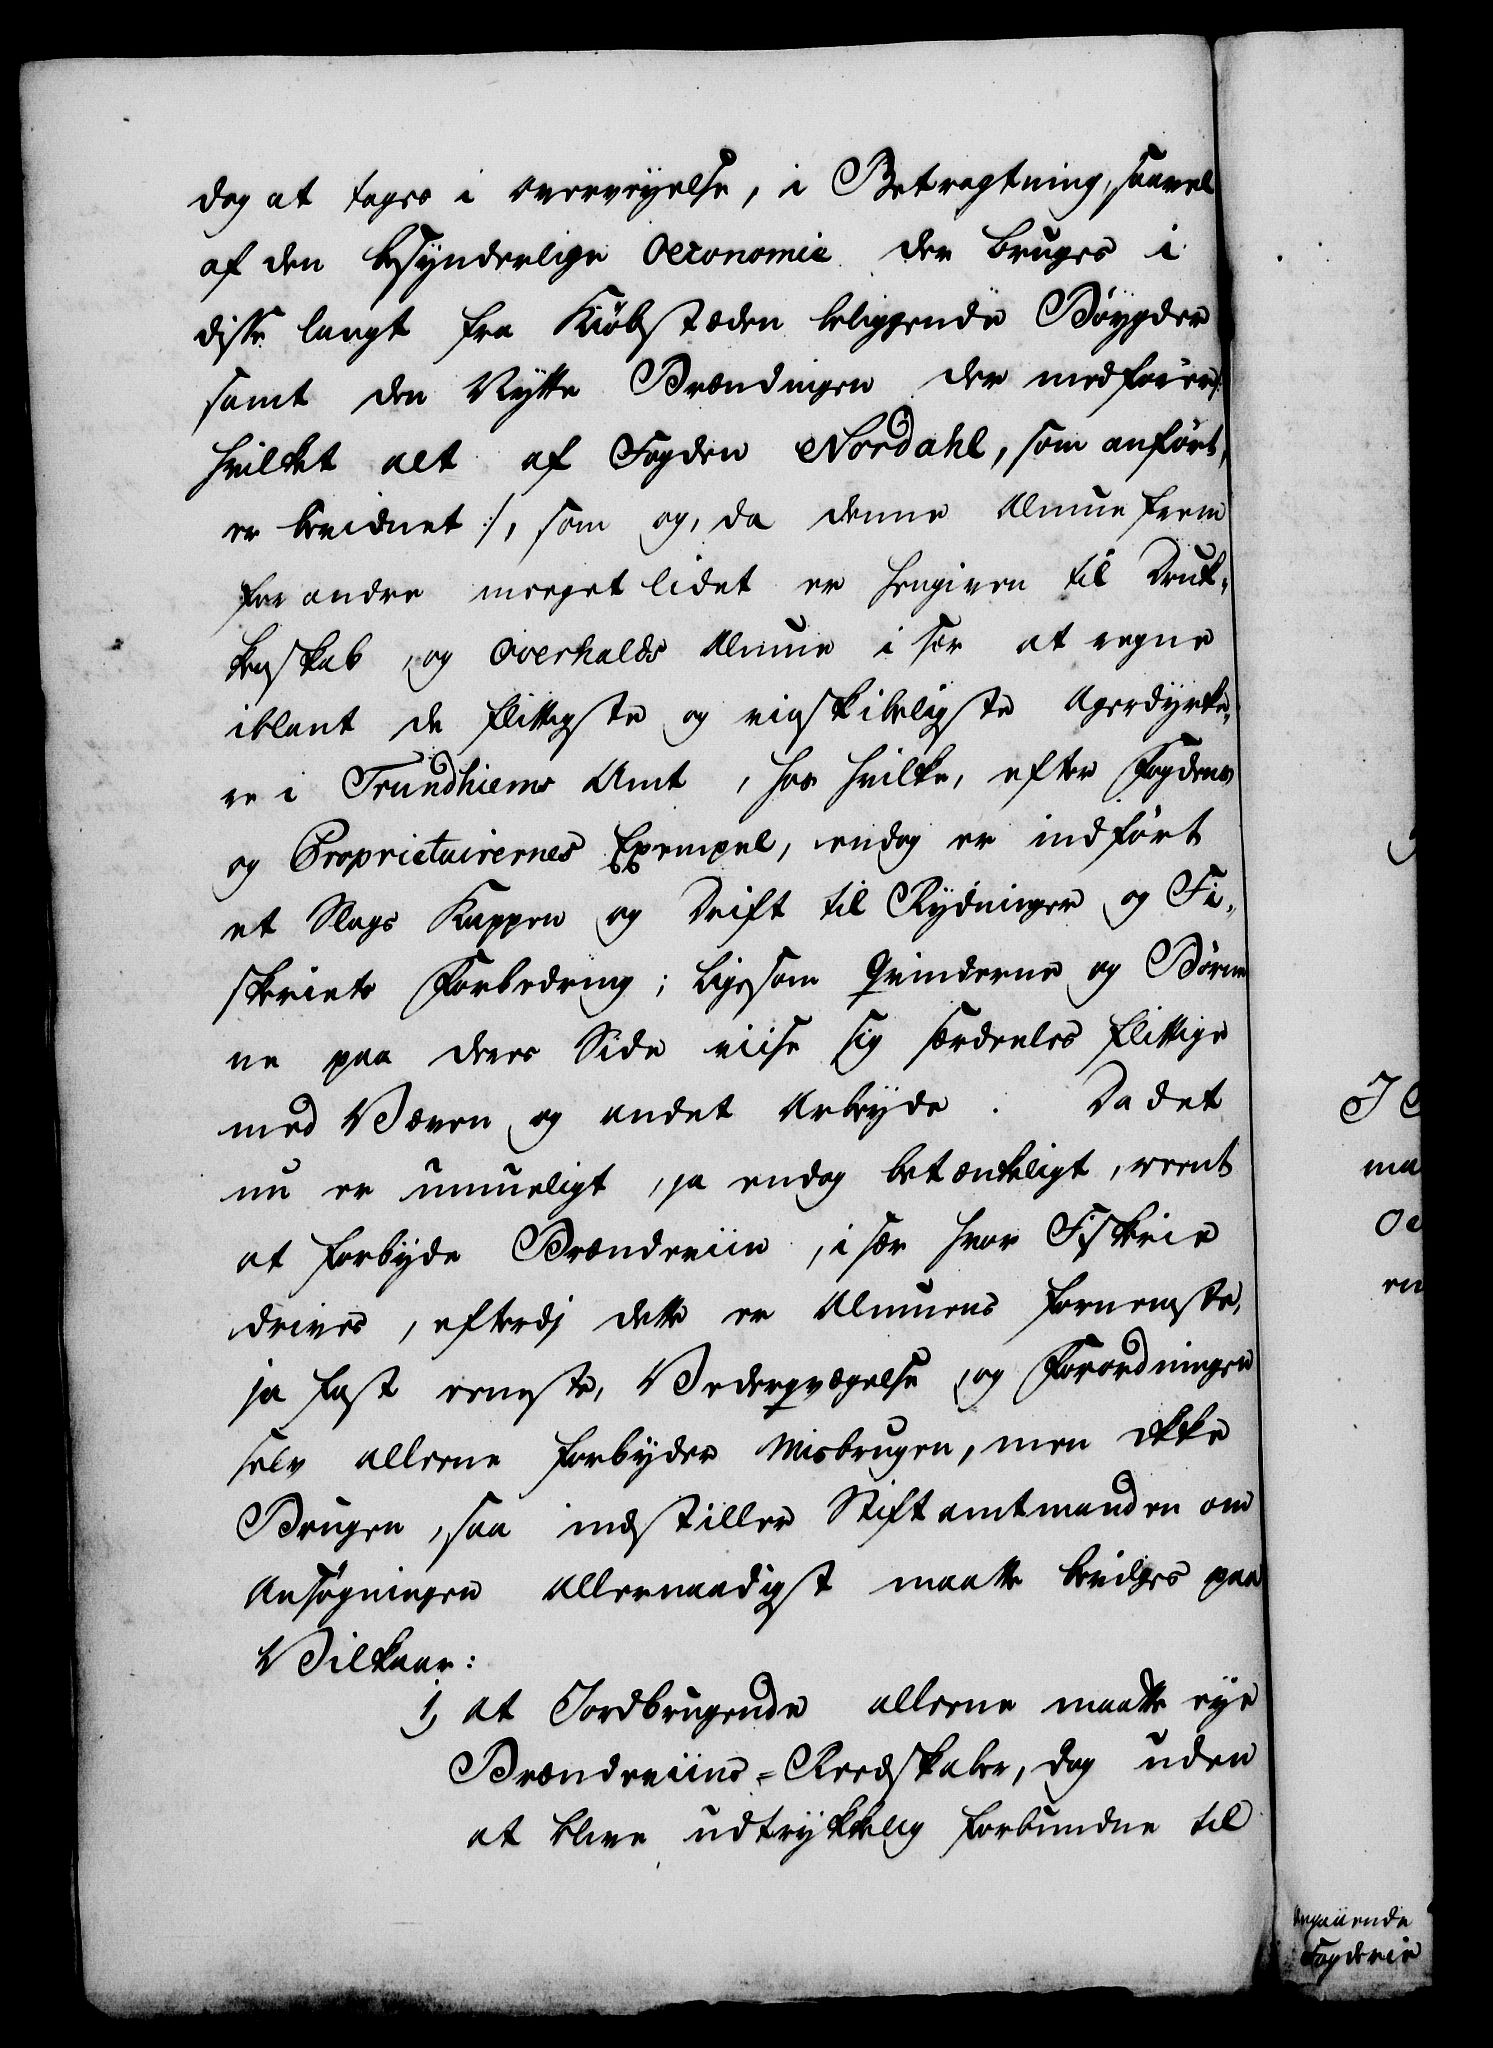 dog at tages i Overveyelse, i Betragtning, saavel
af den besynderlige Oeconomie der bruges i
disse langt fra Kiøbstæden beliggende Bøygder
samt den Nytte Brændingen der medfører
hvilket alt af Fogden Nordahl, som anført,
er bevidnet :/, som og, da denne Almue frem
for andre meeget lidet er hengiven til Druk-
kenskab, og Overhalds Almue i sær at regne
iblant de flittigste og vindskibeligste Agerdyrke-
re i Trundhiems Amt, hos hvilke, efter Fogdens
og Proprietairernes Exempel, endog er indført
et Slags Kappen og Drift til Rydninger og Fi-
skeriets Forbedring; ligesom Qvinderne og Børne-
ne paa deres Side viise sig særdeeles flittige
med Væven og andet Arbeyde. Da det
nu er umueligt, ja endog betænkeligt, reent
at forbyde Brændeviin, i sær hvor Fiskerie
drives, efterdj dette er Almuens fornemste,
ja fast eeneste, Vederqvægelse, og Forordningen
selv alleene forbyder Misbrugen, men ikke
Brugen, saa indstiller Stiftamtmanden om
Ansøgningen allernaadigst maatte bevilges paa
Vilkaar:
1, at Jordbrugende alleene maatte eye
Brændeviins-Reedskaber, dog uden
at blive udtrykkelig forbundne til
Fogderie